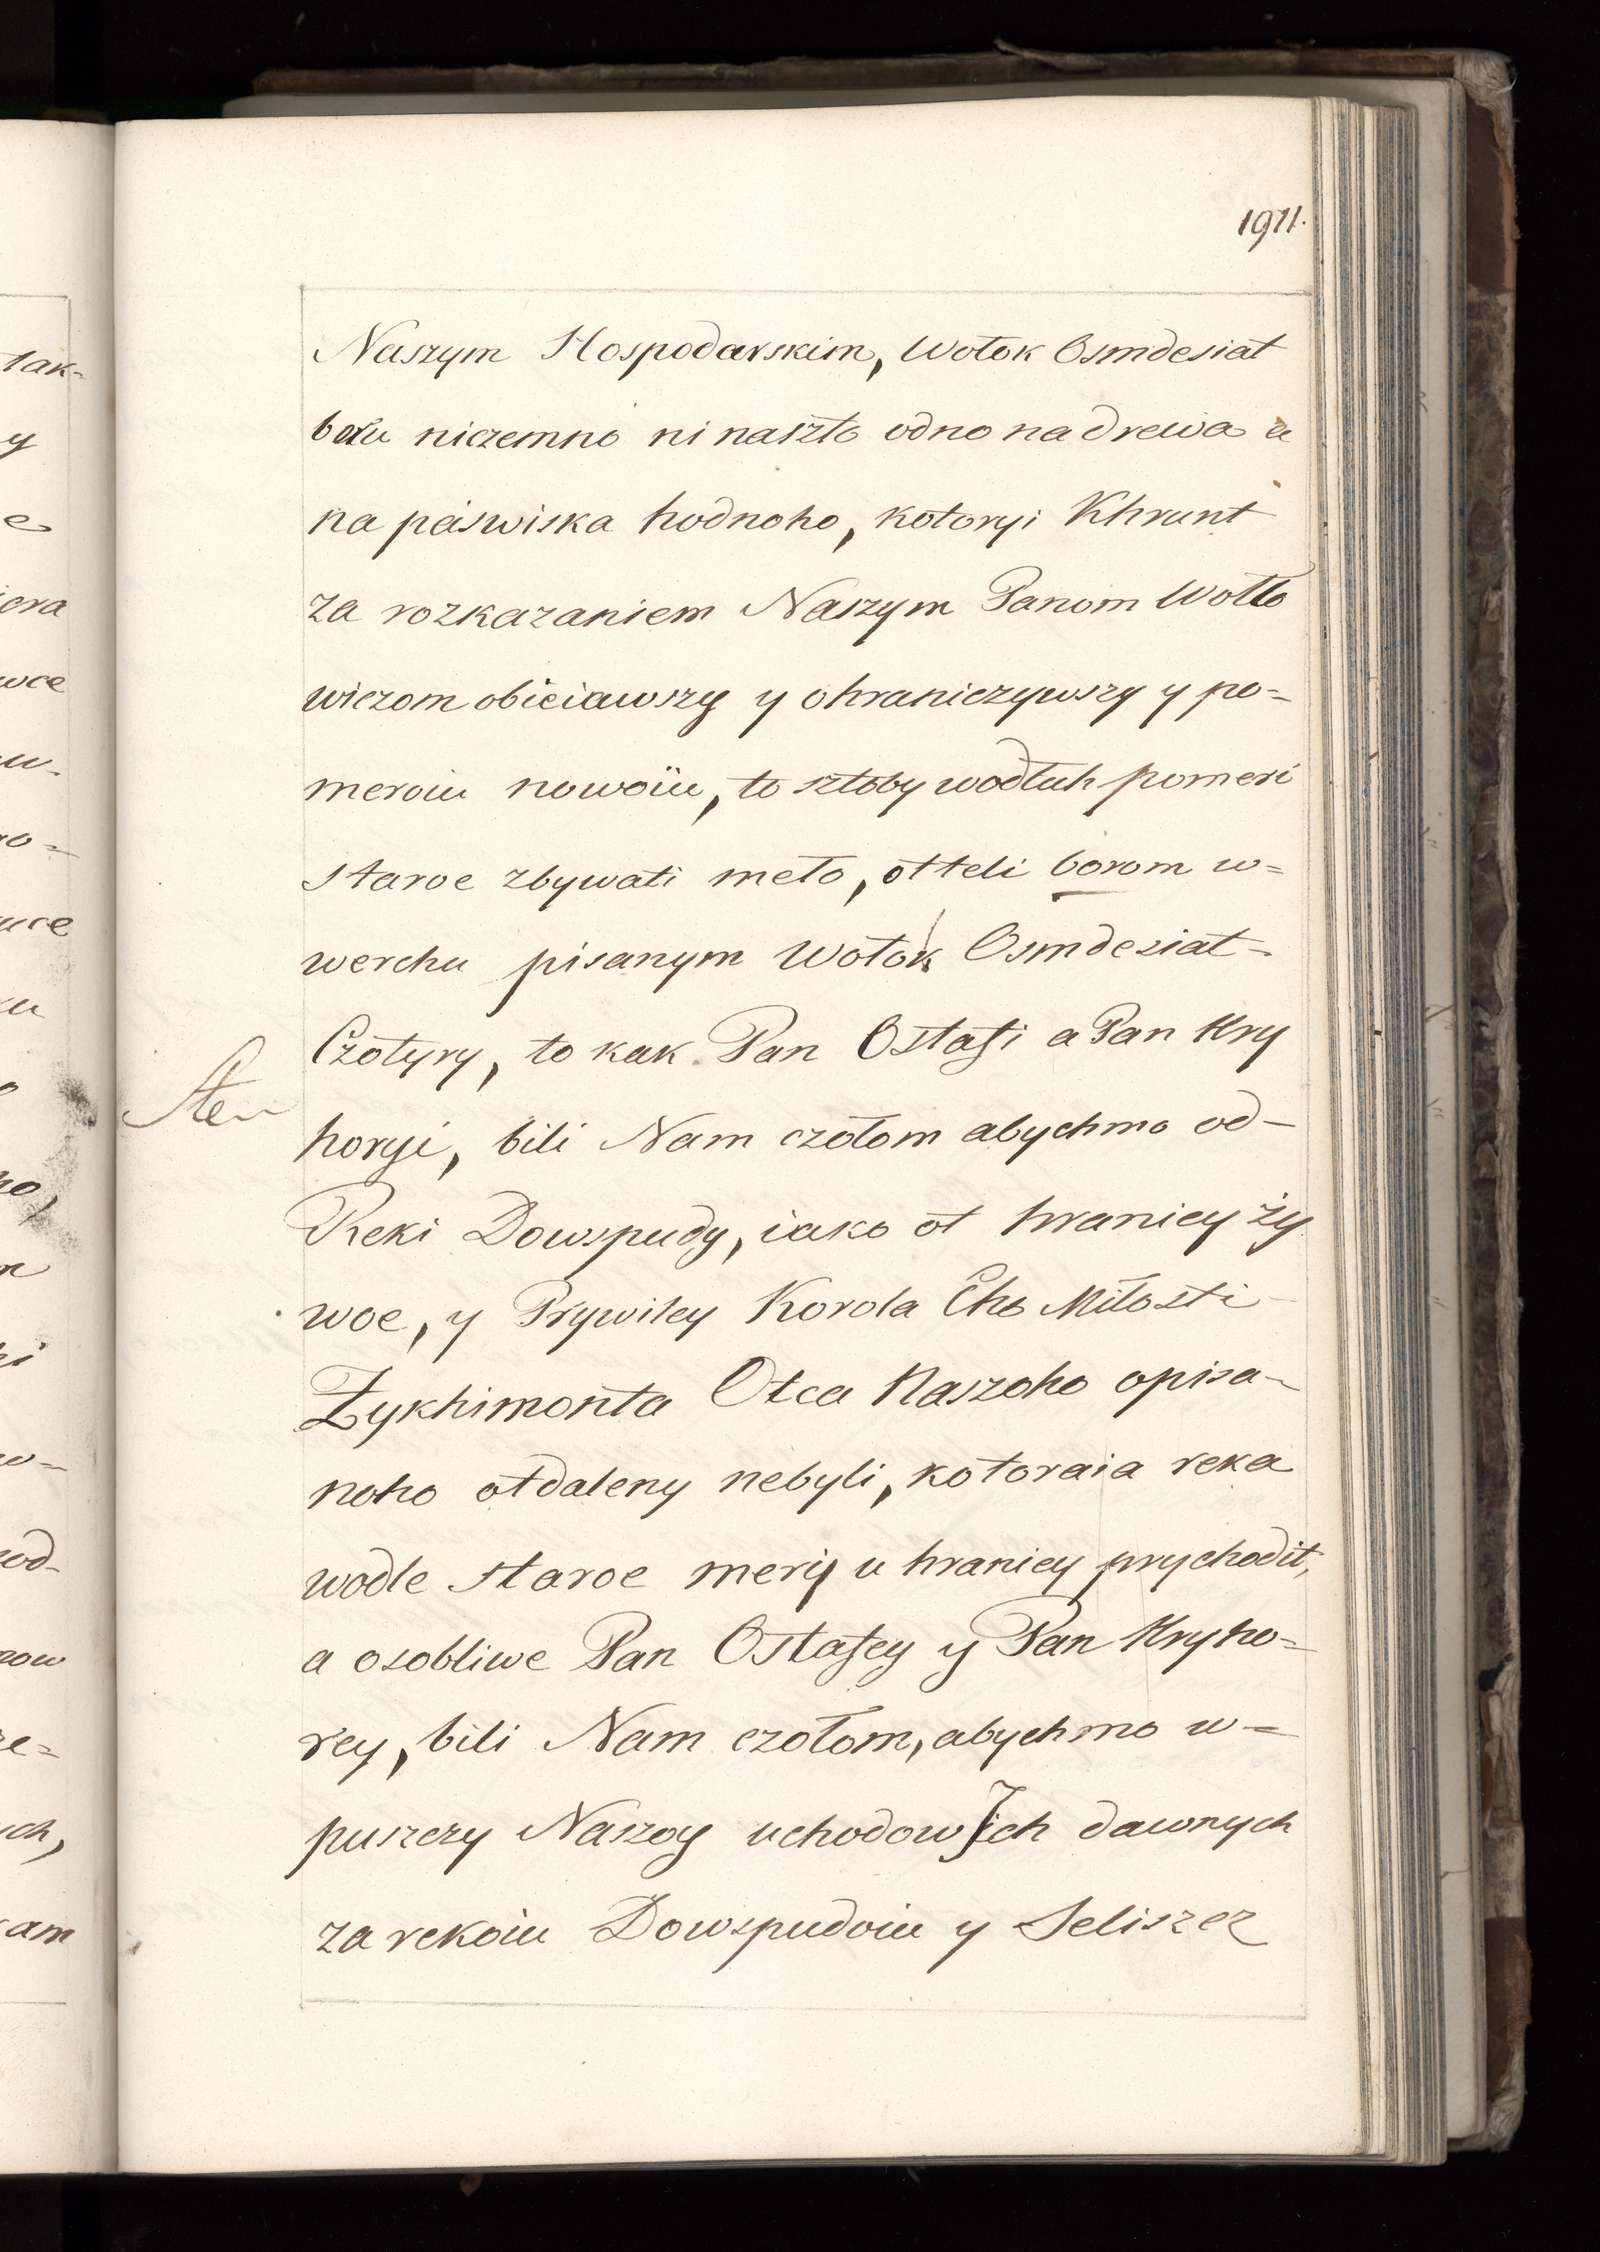 1911.
Naszym Hospodarskim, Wołok Osmdesiat
boru niczemno ni naszto odno na drewa a
na paswiska hodnoho, kotoryi Khrunt
za rozkazaniem Naszym Panom Wołło
wiczom obieiawszy y ohraniczywszy y po=
meroiu nowoiu, to sztoby wodłuh pomeri
staroe zbywati meło, otteli borom w=
werchu pisanym Wołok Osmdesiat=
Czotyry, to kak Pan Ostafi a Pan Hry
horyi, bili Nam czołom abychmo od-
Reki Dowspudy, iako ot hranicy ży
woe, y Prywiley Korola Eho Miłosti
Żykhimonta Otca Naszoho opisa-
noho otdaleny nebyli, kotoraia reka
wodle staroe mery u hranicy prychodit,
a osobliwe Pan Ostafey y Pan Hryho=
rey, bili Nam czołom, abychmo w=
puszczy Naszoy uchodow Ich dawnych
za rekoiu Dowspudoiu y Seliszcz